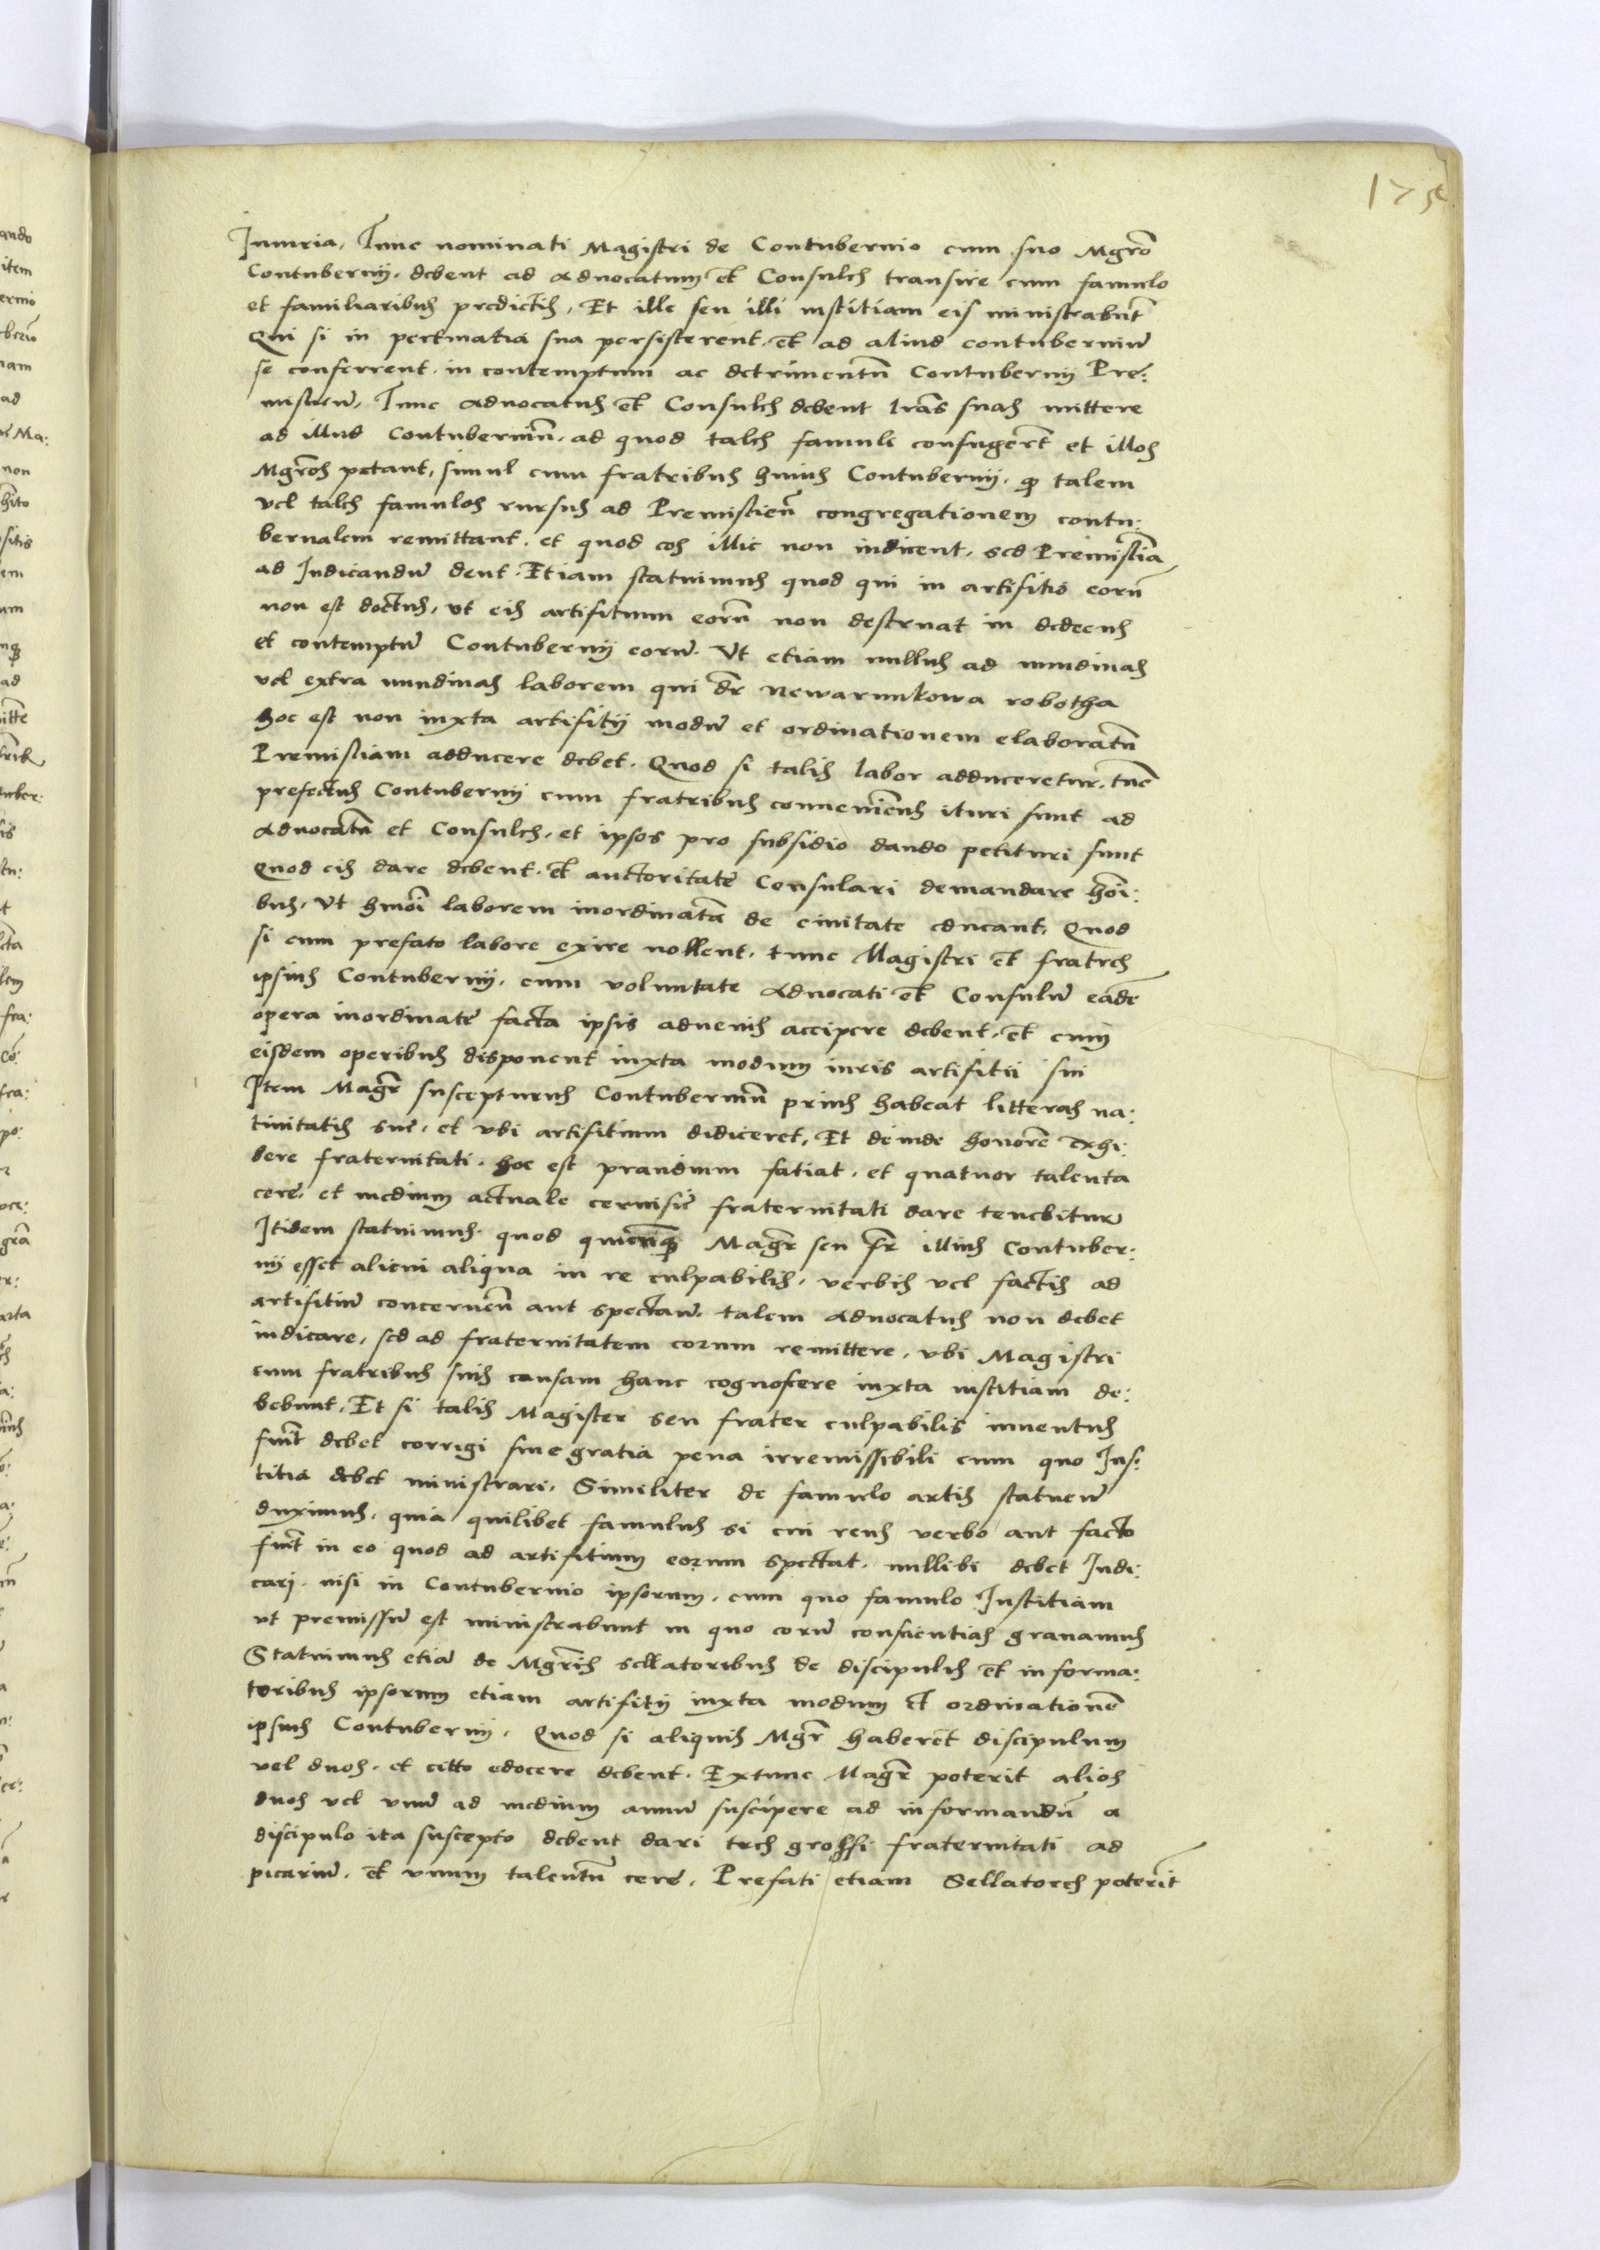 175
Iniuria, Tunc nominati Magistri de Contubernio cum suo Mgrō
Contubernij, debent ad Aduocatum et Consules transire cum famulo
et familiaribus predictis, Et ille seu illi iustitiam eis ministrabūt
Qui si in pertinatia sua persisterent, et ad aliud contuberniū
se conferrent, in contemptum ac detrimentū Contubernij Pre:
misliеn̄, Tunc Aduocatus et Consules debent lrās suas mittere
ad illud Contuberniū, ad quod tales famuli confugerēt et illos
Mgrōs petant, simul cum fratribus huius Contubernij, ꝙ talem
vel tales famulos rursus ad Premislien̄ congregationem contu:
bernalem remittant, et quod eos illic non iudicent, sed Premisliā
ad Iudicandū dent. Etiam statuimus quod qui in artifitio eorū
non est doctus, vt eis artifitium eorū non destruat in dedecus
et contemptū Contubernij eorū. Vt etiam nullus ad nundinas
vel extra nundinas laborem qui dr̄ Newarunkowa robotha
hoc est non iuxta artifitij modū et ordinationem elaboratū
Premisliam adducere debet. Quod si talis labor adduceretur, tūc
prefectus Contubernij cum fratribus conueniēns ituri sunt ad
Aduocatū et Consules, et ipsos pro subsidio dando petituri sunt
Quod eis dare debent, et auctoritate Consulari demandare hoī:
bus, Vt hmōi laborem inordinatā de ciuitate educant, Quod
si cum prefato labore exire nollent, tunc Magistri et fratres
ipsius Contubernij, cum voluntate Aduocati et Consulū eadē
opera inordinate facta ipsis aduenis accipere debent, et cum
eisdem operibus disponent iuxta modum iuris artifitii sui
Item Magr̄ suscepturus Contuberniū prius habeat litteras na:
tiuitatis sue, et vbi artifitium didiceret, Et deinde honorē exhi:
bere fraternitati, hoc est prandium fatiat, et quatuor talenta
cere, et medium actuale ceruisie fraternitati dare tenebitur
Itidem statuimus quod quicūꝙ Magr̄ seu fr̄ illius Contuber:
nij esset alicui aliqua in re culpabilis, verbis vel factis ad
artifitiū concernen̄ aut spectan̄, talem Aduocatus non debet
iudicare, sed ad fraternitatem eorum remittere, vbi Magistri
cum fratribus suis causam hanc cognoscere iuxta iustitiam de:
bebunt, Et si talis Magister seu frater culpabilis inuentus
fuīt debet corrigi sine gratia pena irremissibili cum quo Ius:
titia debet ministrari, Similiter de famulo artis statuen̄
duximus, quia quilibet famulus si cui reus verbo aut facto
fuīt in eo quod ad artifitium eorum spectat, nullibi debet Iudi:
cari, nisi in Contubernio ipsorum, cum quo famulo Iustitiam
vt premissū est ministrabunt in quo eorū conscientias grauamus
Statuimus etiā de Mgrīs sellatoribus de discipulis et informa:
toribus ipsorum etiam artifitij iuxta modum et ordinationē
ipsius Contubernij, Quod si aliquis Mgr̄ haberēt discipulum
vel duos, et citto edocere debent, Extunc Magr̄ poterit alios
duos vel vnū ad medium annū suscipere ad informandū a
discipulo ita suscepto debent dari tres grossi fraternitati ad
picariū, et vnum talentū cere, Prefati etiam Sellatores poterīt